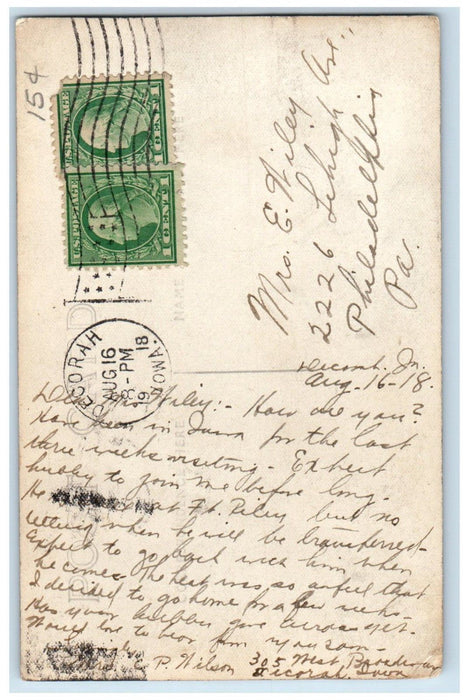 15¢
U.S. POSTAGE
1 CENT 1
U.S. POSTAGE
1 CENT 1
DECORAH
AUG 16
8-PM
1918
IOWA.
Mrs. E. Wiley
2226 Lehigh Ave.,
Philadelphia
Pa.
Decorah, Ia.
Aug-16-18.
Dear Mrs. Wiley:- How are you?
Have been in Iowa for the last
three weeks visiting. Expect
hubby to join me before long.
He at Ft. Riley but no
telling when he will be transferred-
Expect to go back with him when
he comes. The heat was so awful that
I decided to go home for a few weeks-
Has your hubby gone across yet.
Would love to hear from you soon-
Mrs. C. P. Wilson 305 West Broadway
Decorah, Iowa